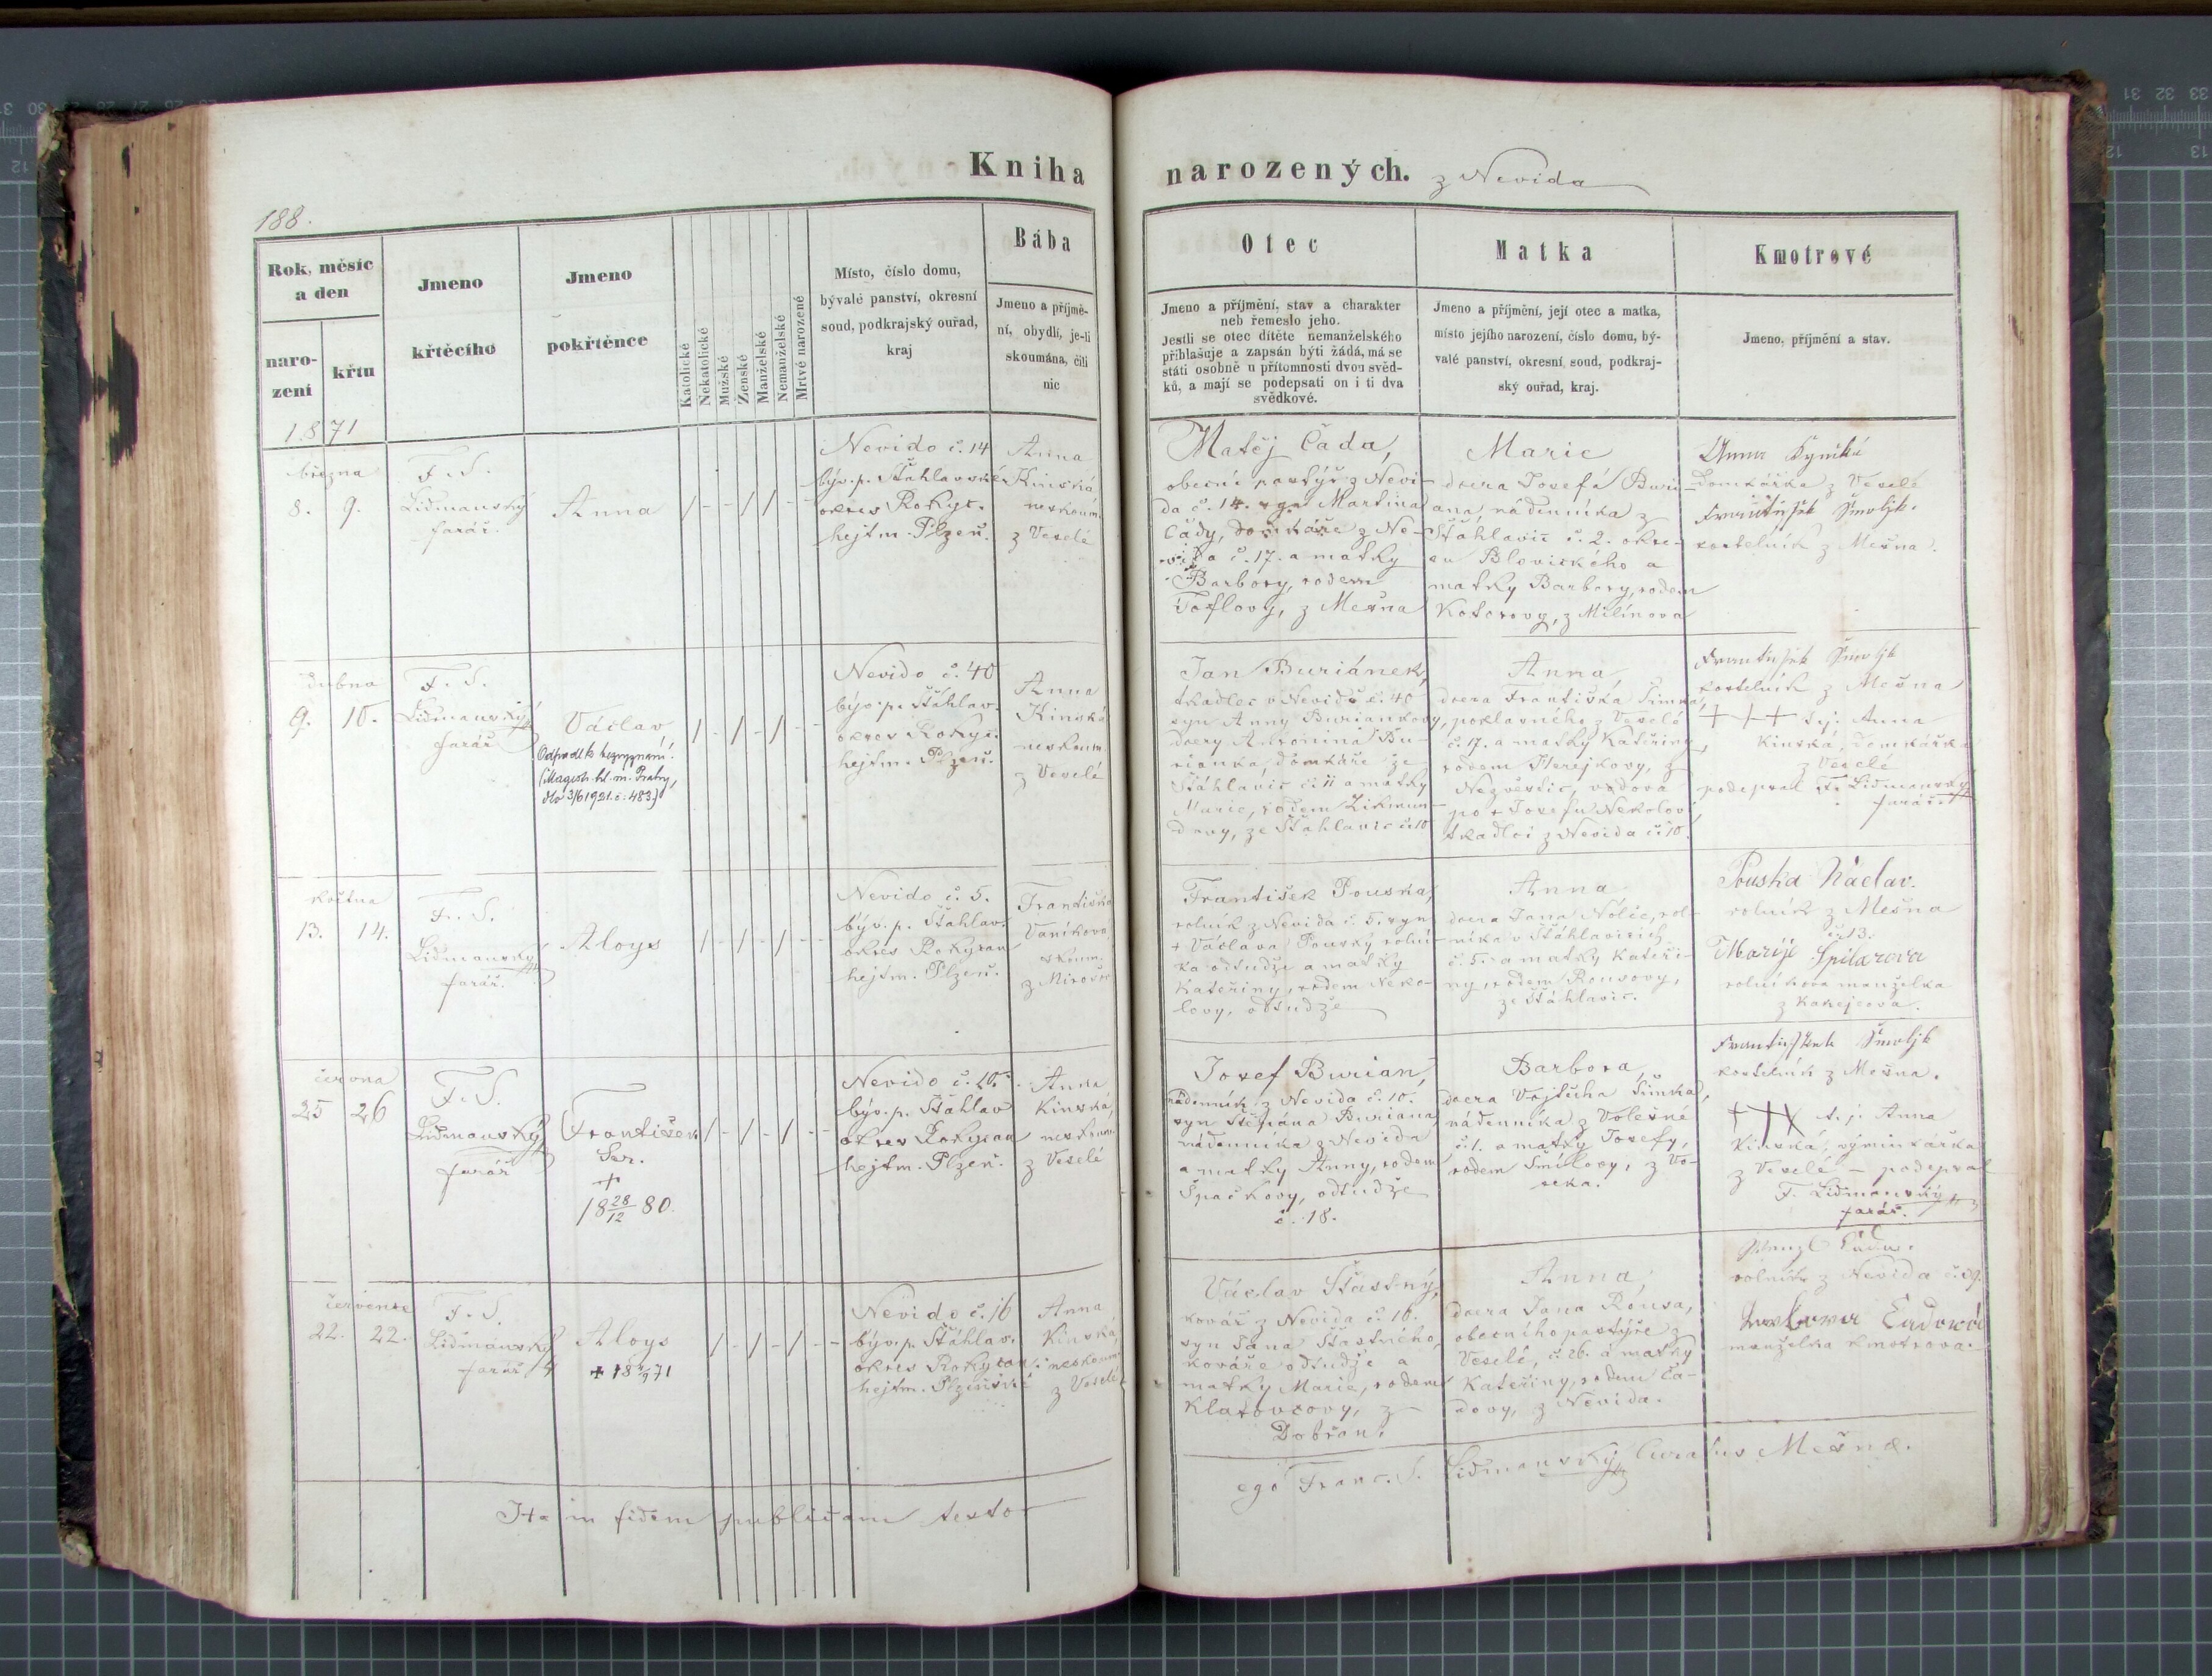 Kniha narozených. z Nevida
188.
Rok, měsíc a den
naro-
zení
křtu
Jmeno
křtěcího
Jmeno
pokřtěnce
Katolické
Nekatolické
Mužské
Ženské
Manželské
Nemanželské
Mrtvé narozené
Místo, číslo domu,
bývalé panství, okresní
soud, podkrajský ouřad,
kraj
Bába
Jmeno a příjmě-
ní, obydlí, je-li
skoumána, čili
nic
Otec
Jmeno a příjmění, stav a charakter
neb řemeslo jeho.
Jestli se otec dítěte nemanželského
přihlašuje a zapsán býti žádá, má se
státi osobně u přítomnosti dvou svěd-
ků, a mají se podepsati on i ti dva
svědkové.
Matka
Jmeno a příjmění, její otec a matka,
místo jejího narození, číslo domu, bý-
valé panství, okresní soud, podkraj-
ský ouřad, kraj.
Kmotrové
Jmeno, příjmění a stav.
1871
března
8. 9.
F. S.
Lidmanský
farář.
Anna
Nevido č. 14
býv. p. Šťáhlavské
okres Rokyc.
hejtm. Plzeň.
Anna
Kinská
neskoum.
z Veselé
Matěj Čada,
obecní pastýř z Nevi-
da č. 14. syn Martina
Čády, domkáře z Ne-
vida č. 17. a matky
Barbory, rodem
Toflovy, z Mešna
Marie
dcera Josefa Buri-
ana, nádenníka z
Šťáhlavic č. 2. okre-
su Blovického a
matky Barbory, rodem
Kotorovy, z Milínova
Anna Kynská
domkářka z Veselé
František Smolik.
kostelník z Mešna.
dubna
9. 10.
F. S.
Lidmanský
farář
Václav
Odpadl k bezvyznání!
(Magistr. hl. m. Prahy,
dto 3/6 1921. č. 483.)
Nevido č. 40
býv. p. Šťáhlav.
okres Rokyc.
hejtm. Plzeň.
Anna
Kinská
neskoum.
z Veselé
Jan Buriánek,
tkadlec v Nevidě č. 40
syn Anny Buriankovy,
dcery Antonína Bu-
rianka, domkáře ze
Šťáhlavic č. 11 a matky
Marie, rodem Zikmun-
dovy, ze Šťáhlavic č. 10
Anna,
dcera Františka Šimka,
poklasného z Veselé
č. 17. a matky Kateřiny,
rodem Herejkovy, z
Nezvěstic, vdova
po + Josefu Nekolov
tkadlci z Nevida č. 10.
František Smolik
kostelník z Mešna
+++ t.j. Anna
Kinská, domkářka
z Veselé
podepsal F. Lidmanský
farář.
května
13. 14.
Fr. S.
Lidmanský
farář.
Aloys
Nevido č. 5.
býv. p. Šťáhlav.
okres Rokycan
hejtm. Plzeň.
Františka
Vaníková
skoum.
z Mirošov
František Pouska,
rolník z Nevida č. 5. syn
+ Václava Pousky rolní-
ka odtudže a matky
Kateřiny, rodem Neko-
lovy, odtudže
Anna
dcera Jana Nólic, rol-
níka v Šťáhlavicích
č. 5. a matky Kateři-
ny, rodem Rousovy,
ze Šťáhlavic.
Pouska Václav.
rolník z Mešna
č. 13.
Marije Spilarova
rolníkova manželka
z Kakejcova.
června
25 26
F. S.
Lidmanský
farář
František
Ser.
+
18 28/12 80.
Nevido č. 10.
býv. p. Šťáhlav
okres Rokycan
hejtm. Plzeň.
Anna
Kinská,
neskoum.
z Veselé
Josef Burian,
nádenník z Nevida č. 10.
syn Štěpána Buriana,
nádenníka z Nevida
a matky Anny, rodem
Špačkovy, odtudže
č. 18.
Barbora,
dcera Vojtěcha Šimka,
nádenníka z Volešné
č. 1. a matky Josefy,
rodem Šmídovy, z Vo-
seka.
František Smolik
kostelník z Mešna.
+++ t. j. Anna
Kinská, výminkářka
z Veselé – podepsal
F. Lidmanský
farář.
července
22. 22.
F. S.
Lidmanský
farář
Aloys
Nevido č. 16
býv. p. Šťáhlav.
okres Rokycan
hejtm. Plzeňské
Anna
Kinská,
neskoum.
z Veselé
Václav Šťastný,
kovář z Nevida č. 16.
syn Jana Šťastného,
kováře odtudže a
matky Marie, rodem
Klatovcovy, z
Dobřan.
Anna,
dcera Jana Rousa,
obecního pastýře z
Veselé, č. 26. a matky
Kateřiny, rodem Ča-
dovy, z Nevida.
rolník z Nevida č. 39.
manželka kmotrova.
Ita in fidem publicam testor
ego Franc. S. Lidmanský, Curatus Mešnæ.